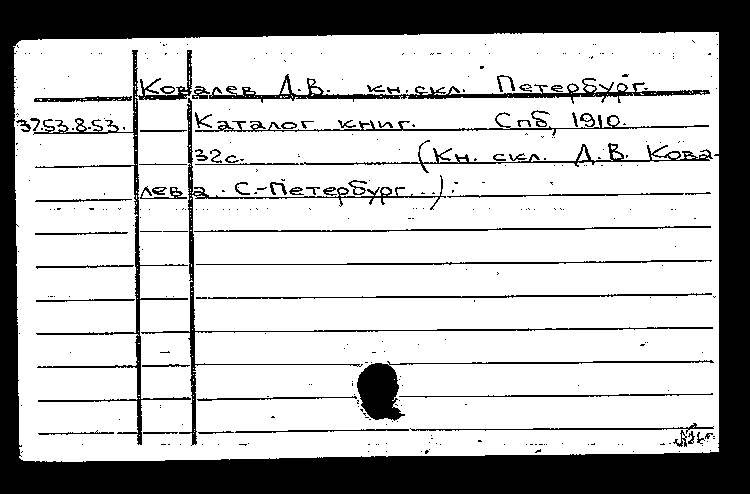 Ковалев, Д.В. кн.скл. Петербург.
37.53.8.53. Каталог книг. Спб, 1910.
32с. (Кн. скл. Д.В. Кова-
лева. С-Петербург...).